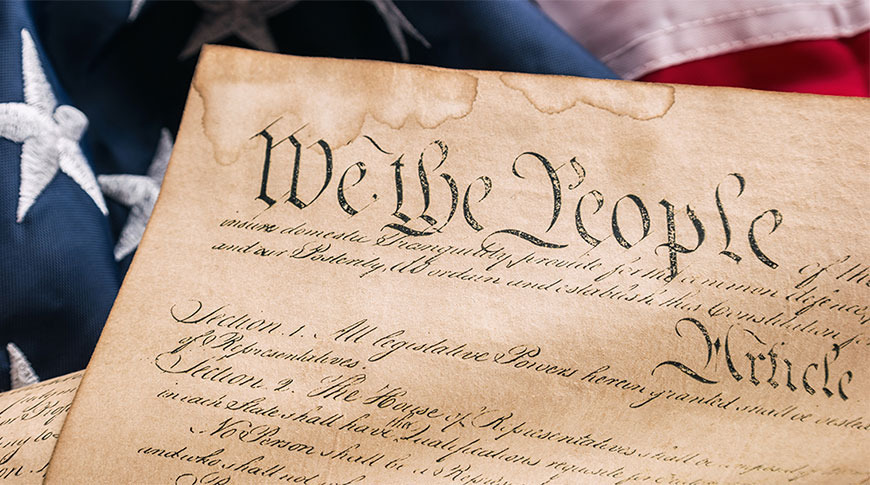 We the People of the
insure domestic Tranquility, provide for the common defence,
and our Posterity, do ordain and establish this Constitution for
Article
Section. 1. All legislative Powers herein granted shall be vested
of Representatives.
Section. 2. The House of Representatives shall be composed
in each State shall have the Qualifications requisite for
No Person shall be a Repres
and who shall not